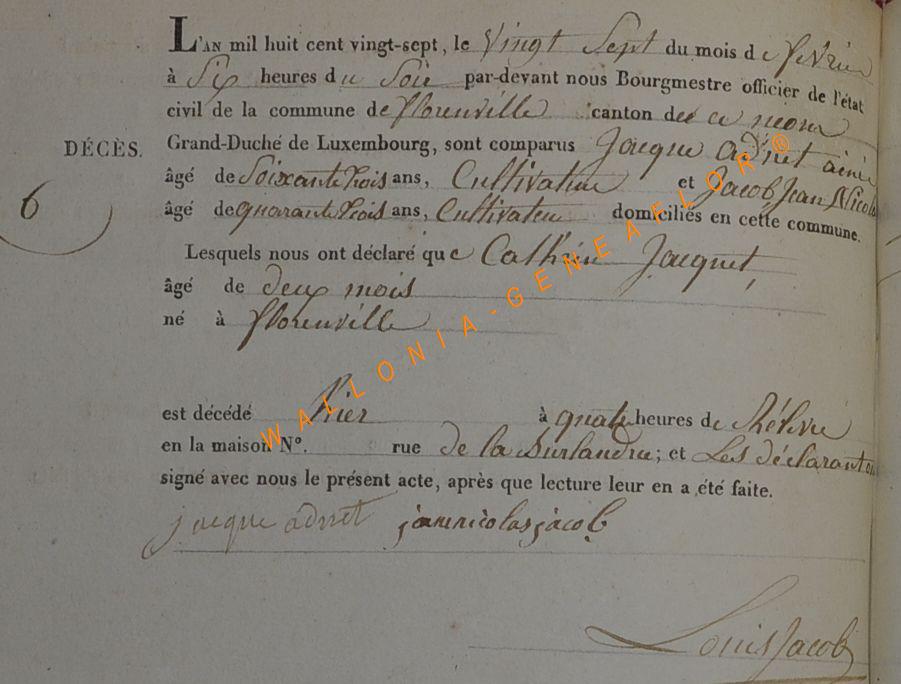 L'AN mil huit cent vingt-sept, le Vingt Sept du mois de fevrier
à Six heures du Soir par-devant nous Bourgmestre officier de l'état
civil de la commune de florenville canton de
DÉCÈS. Grand-Duché de Luxembourg, sont comparus Jacque adnet ainé
âgé de Soixante trois ans, Cultivateur et Jacob Jean Nicolas
6 âgé de quarante trois ans, Cultivateur domiciliés en cette commune.
Lesquels nous ont déclaré que Cathrine Jacquet,
âgé de deux mois
né à florenville
est décédé hier à quatre heures de
en la maison N°. rue de la ; et Les déclarant on
signé avec nous le présent acte, après que lecture leur en a été faite.
jacque adnet jean nicolas jacob
Louis Jacob
WALLONIA-GENEAFLOR®